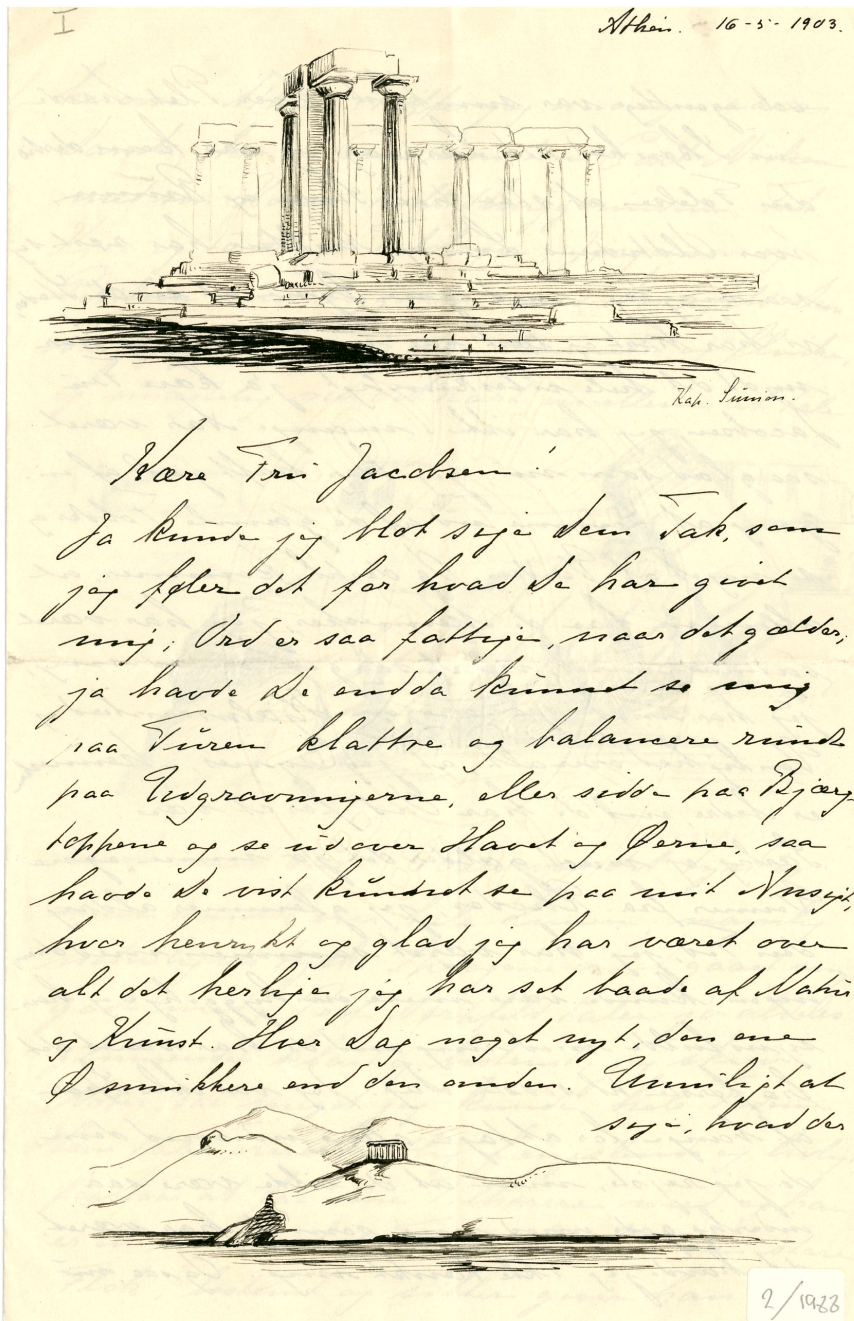 I
Athen. 16-5-1903.
Kap. Sunion.
Kære Fru Jacobsen!
Ja kunde jeg blot sige Dem Tak, som
jeg føler det for hvad De har givet
mig; Ord er saa fattige, naar det gælder;
ja havde De endda kunnet se mig
paa Turen klattre og balancere rundt
paa Udgravningerne, eller sidde paa Bjærg
toppene og se ud over Havet og Øerne, saa
havde De vist kunnet se paa mit Ansigt,
hvor henrykt og glad jeg har været over
alt det herlige jeg har set baade af Natur
og Kunst. Hver Dag noget nyt, den ene
Ø smukkere end den anden. Umuligt at
sige, hvad der
2/1988